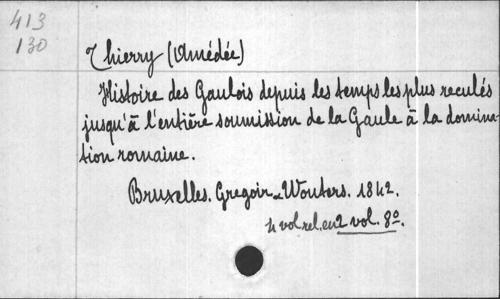 413
130
Thierry (Amédée)
Histoire des Gaulois depuis les temps les plus reculés
jusqu'à l'entière soumission de la Gaule à la domina-
tion romaine.
Bruxelles. Gregoir-Wouters. 1842.
4 vol rel. en 2 vol. 8º.